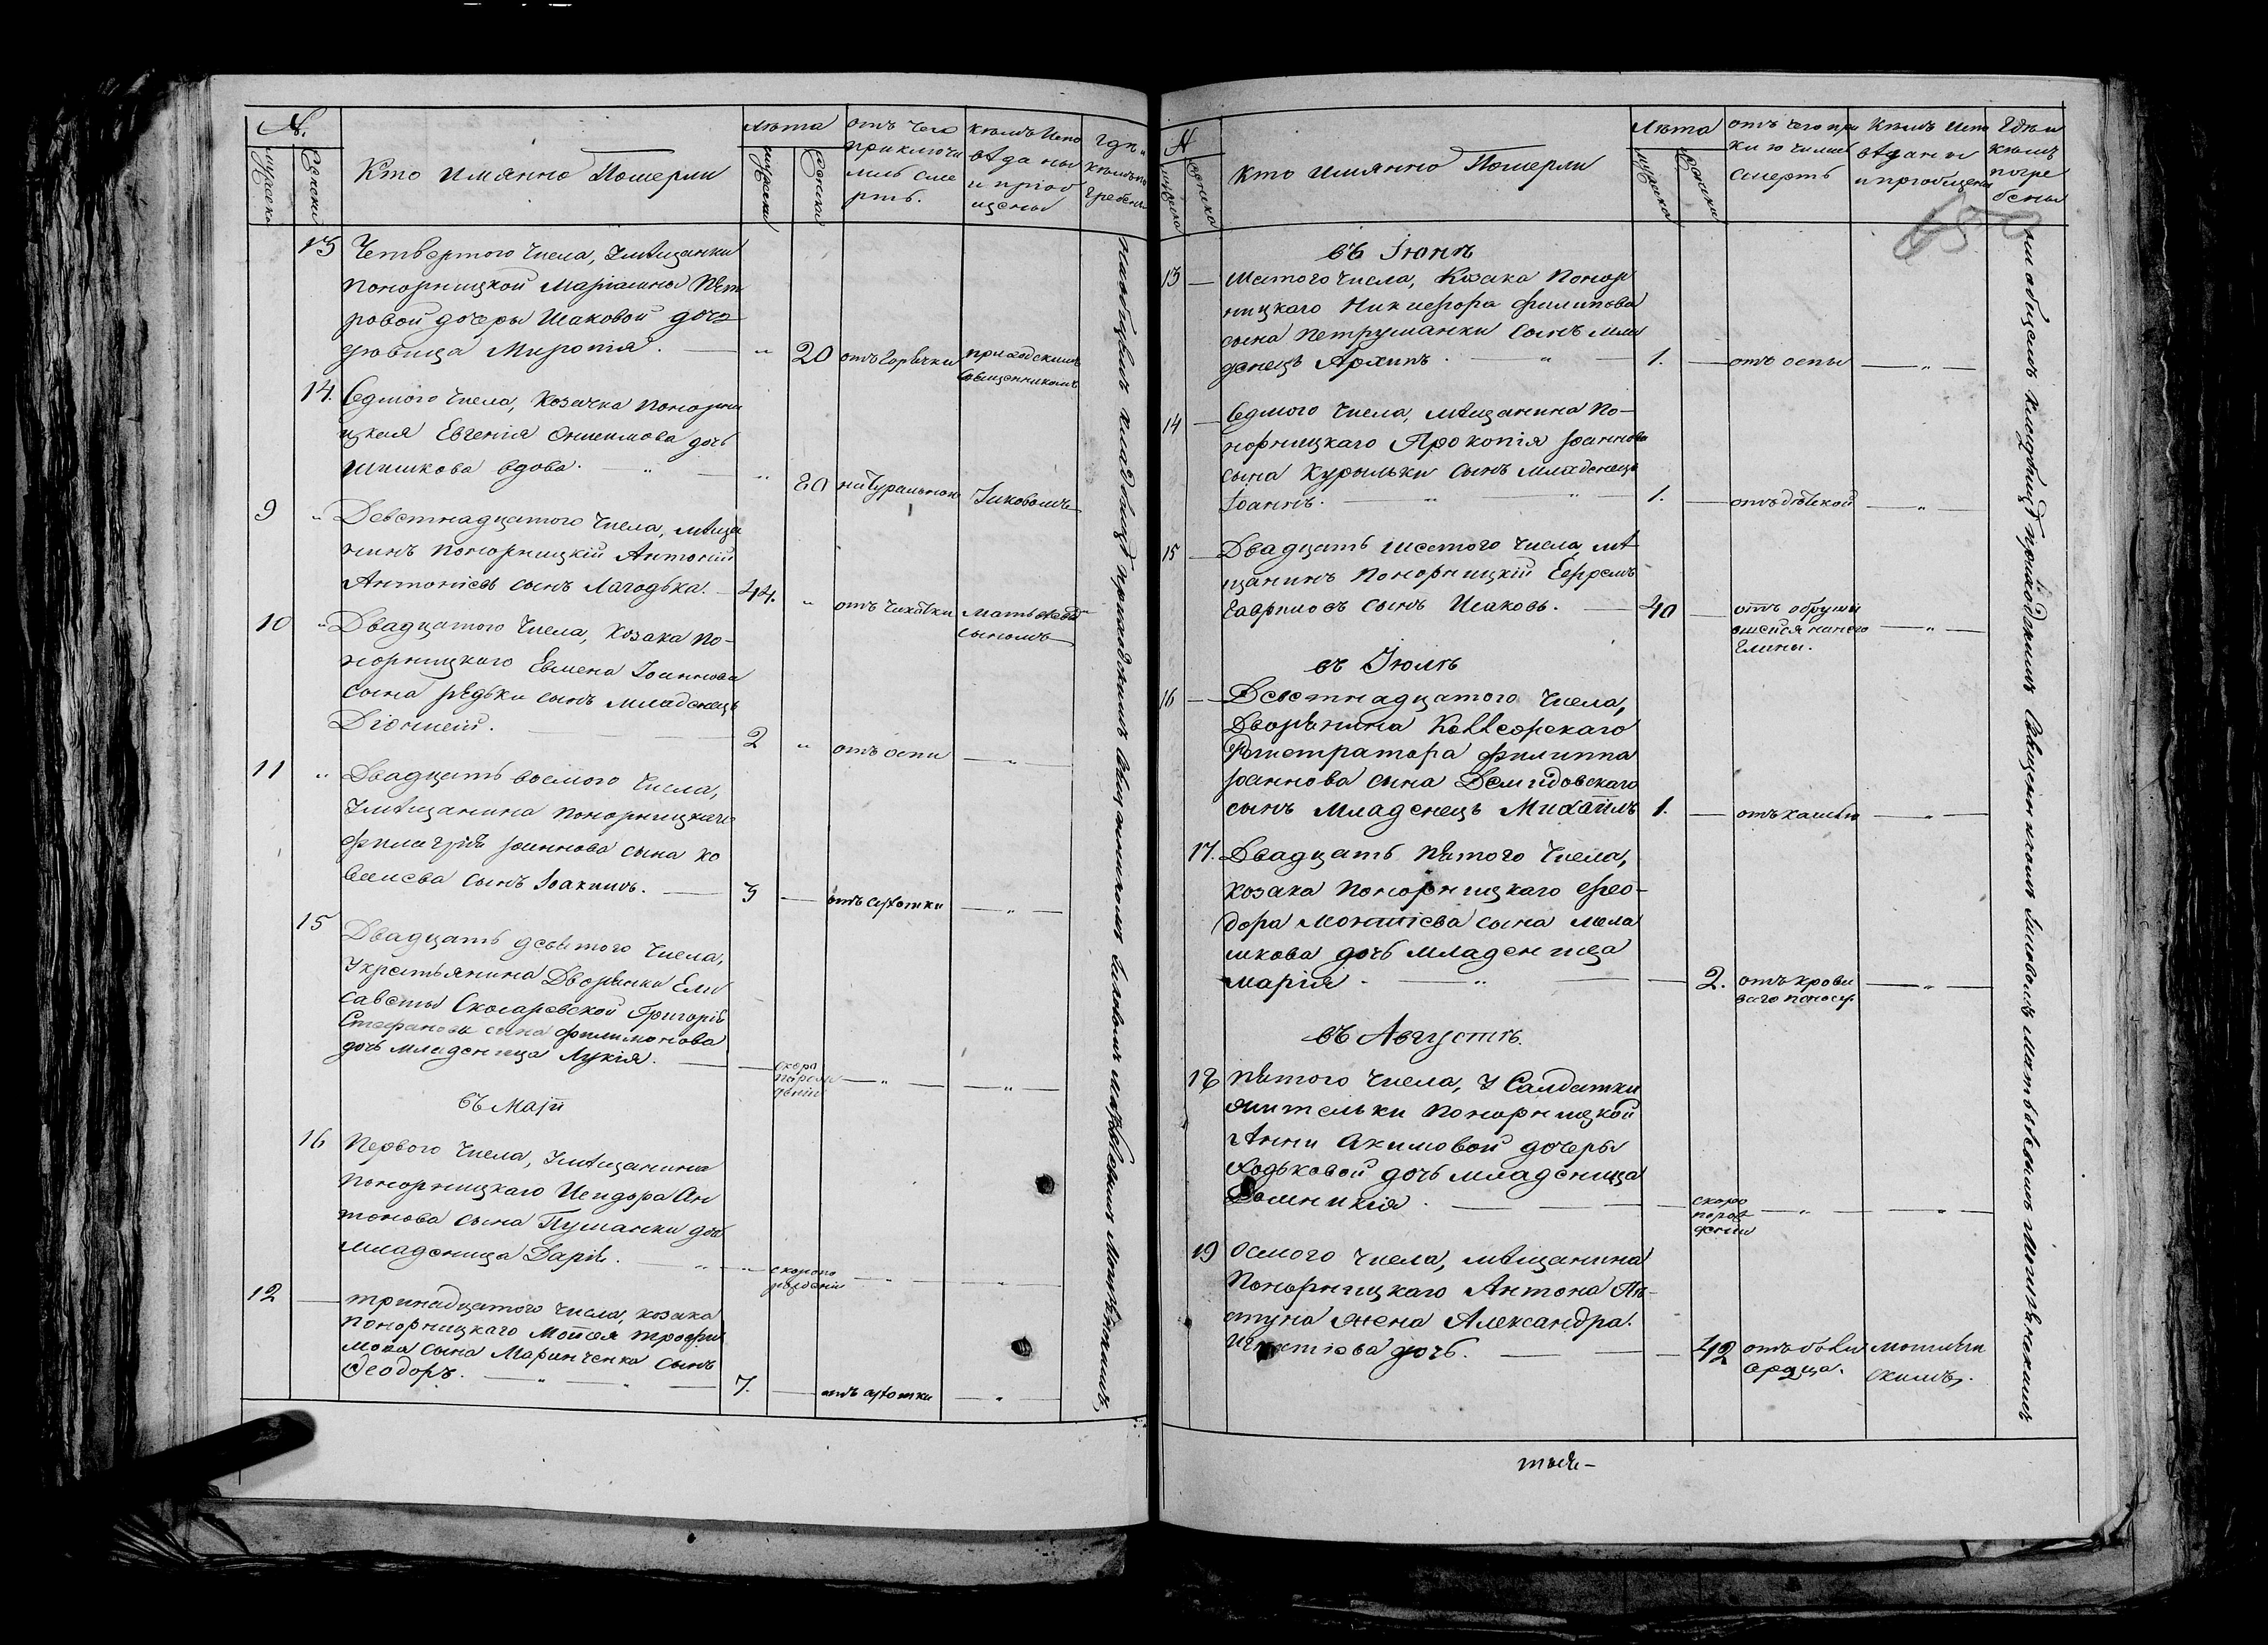 №.
мужеска
женска
Кто имянно Померли
лѣта
мужеска
женска
отъ чего
приключи
лась сме
рть.
кѣмъ испо
вѣданы
и пріоб
щены
гдѣ и
кѣмъ по
гребены
13 Четвертого числа, У мѣщанки
понорницкой Маріанны Пет
ровой дочеры Исаковой дочь
дѣвица Миропія. — " 20 отъ горячки приходскимъ
Священникомъ
14. Седмого числа, козачка понорни
цкая Евгенія Онисимова дочь
Шишкова вдова. — " — " 80 натуральною Іаковомъ
9 " Девятнадцатого числа, мѣща
нинъ понорницкій Антоній
Антоніевъ сынъ Лагодька. — 44. " отъ чахотки Матвѣевы
сыномъ
10 " Двадцатого числа, козака по-
норницкаго Евмена Іоаннова
сына рѣдьки сынъ младенецъ
Діонисій. — 2 " отъ оспи — " —
11 " Двадцать восмого числа,
У мѣщанина понорницкаго
Филагрія Іоаннова сына ко
сынъ Іоакимъ. — 3 — отъ сухотки — " —
15 Двадцать девятого числа,
У крестьянина Дворянки Ели
саветы Сколаревской Григорія
Стефанова сына Филимонова
дочь младеница Лукія. — — скоро
по рож
деніи — " — — " —
въ Маіи
16 Первого числа, У мѣщанина
понорницкаго Исидора Ан
тонова сына Пуманки дочь
младеница Дарія. — " — " скоро по
рожденіи — " — — " —
12 — тринадцатого числа, козака
понорницкаго Моѵсея трофи
мова сына Маринченка сынъ
Ѳеодоръ. — " — " — 7. — отъ сухотки — " —
на общемъ кладбищѣ приходскимъ Священникомъ Іаковомъ
№
мужеска
женска
Кто имянно Померли
Лѣта
мужеска
женска
отъ чего при
ключилась
смерть
Кѣмъ испо
вѣданы
и пріобщены
Гдѣ и
кѣмъ
погре
бены
въ Іюнѣ
13 — Шестого числа, Козака Понор
ницкаго Никифора филипова
сына петруманки сынъ мла
денецъ Архипъ. " — 1. — отъ оспы — " —
14 — Седмого числа, мѣщанина по-
норницкаго Прокопія Іоаннова
сына Курыльки сынъ младенецъ
Іоаннъ. — " — " 1. — — " —
15 — Двадцать шестого числа, мѣ
щанинъ понорницкій Ефремъ
Гавриловъ сынъ Исаковъ. — 40 — отъ обруши
вшейся на него
глины. — " —
въ Іюлѣ
16 — Девятнадцатого числа,
Дворянина Коллежскаго
Регистратора филиппа
Іоаннова сына Демидовскаго
сынъ младенецъ Михаилъ 1. — отъ кашлю — " —
17. Двадцать пятого числа,
козака понорницкаго Ѳео-
дора сына мела
шкова дочь младеница
марія. — " — — 2. отъ крова
ваго поносу — " —
въ Августѣ.
18 Пятого числа, У Салдатки
жительки понорницкой
Анни Акимовой дочеры
Ходьковой дочь младеница
Домникія. — — — — скоро
по рож
деніи — " — — " —
19 осмого числа, мѣщанина
понорницкаго Антона Па-
стуна жена Александра
Игнатіева дочь. — — 42 отъ боли
сердца. Могилев
скимъ.
на общемъ кладбищѣ приходскимъ Священникомъ Іаковомъ Матвѣевымъ Могилевскимъ